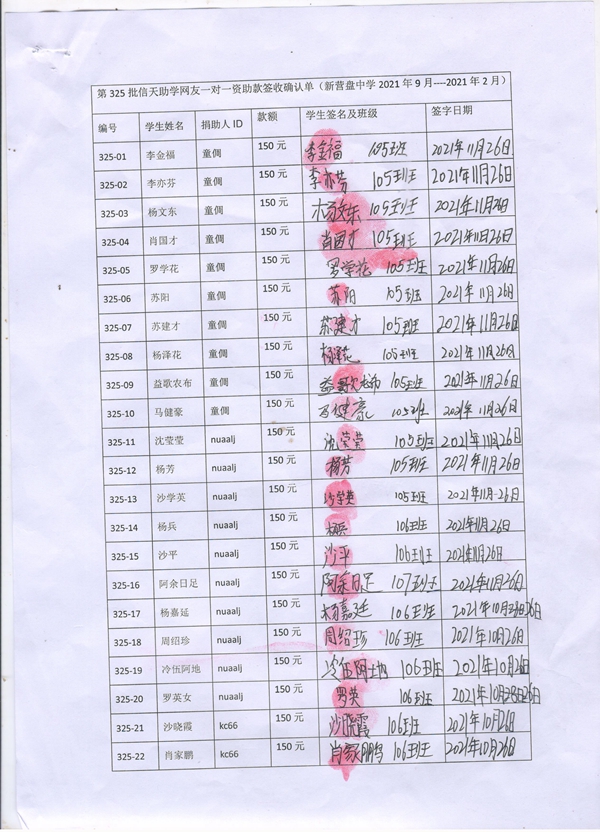 第 325 批信天助学网友一对一资助款签收确认单（新营盘中学 2021 年 9 月----2021 年 2 月）
编号 学生姓名 捐助人 ID 款额 学生签名及班级 签字日期
325-01 李金福 童倜 150 元 李金福 105班 2021年11月26日
325-02 李亦芬 童倜 150 元 李亦芬 105班 2021年11月26日
325-03 杨文东 童倜 150 元 杨文东 105班 2021年11月26日
325-04 肖国才 童倜 150 元 肖国才 105班 2021年11月26日
325-05 罗学花 童倜 150 元 罗学花 105班 2021年11月26日
325-06 苏阳 童倜 150 元 苏阳 105班 2021年11月26日
325-07 苏建才 童倜 150 元 苏建才 105班 2021年11月26日
325-08 杨泽花 童倜 150 元 杨泽花 105班 2021年11月26日
325-09 益歌农布 童倜 150 元 益歌农布 105班 2021年11月26日
325-10 马健豪 童倜 150 元 马健豪 105班 2021年11月26日
325-11 沈莹莹 nuaalj 150 元 沈莹莹 105班 2021年11月26日
325-12 杨芳 nuaalj 150 元 杨芳 105班 2021年11月26日
325-13 沙学英 nuaalj 150 元 沙学英 105班 2021年11月26日
325-14 杨兵 nuaalj 150 元 杨兵 106班 2021年11月26日
325-15 沙平 nuaalj 150 元 沙平 106班 2021年11月26日
325-16 阿余日足 nuaalj 150 元 阿余日足 107班 2021年11月26日
325-17 杨嘉延 nuaalj 150 元 杨嘉延 106班 2021年10月26日
325-18 周绍珍 nuaalj 150 元 周绍珍 106班 2021年10月26日
325-19 冷伍阿地 nuaalj 150 元 冷伍阿地 106班 2021年10月26日
325-20 罗英女 nuaalj 150 元 罗英 106班 2021年10月26日
325-21 沙晓霞 kc66 150 元 沙晓霞 106班 2021年10月26日
325-22 肖家鹏 kc66 150 元 肖家鹏 106班 2021年10月26日